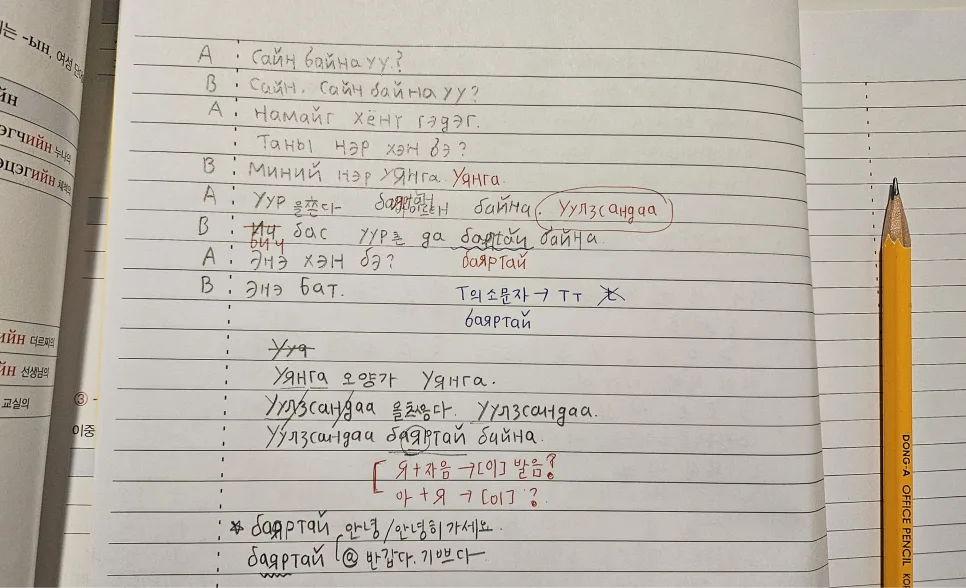 는 -ын, 여성
йн
эгчийн 누나의
эцэгийн
ийн 더르찌의
ийн 선생님의
교실의
③
이중
A : Сайн байна уу?
B : Сайн. Сайн байна уу?
A : Намайг Хёнг гэдэг.
Таны нэр хэн бэ?
B : Миний нэр Уянга. Уянга.
A : Уур байна. Уулзсандаа
B : Ич бич бас уур да баяртай байна.
A : Энэ хэн бэ? баяртай
B : Энэ Бат. Т의 소문자 → Тт t
баяртай
Ууя
Уянга 오양가 Уянга.
Уулзсандаа Уулзсандаа.
Уулзсандаа баяртай байна.
Я+자음 → [이] 발음?
아 + Я → [이] ?
* баяртай 안녕/안녕히 가세요.
баяртай @ 반갑다. 기쁘다
DONG-A OFFICE PENCIL